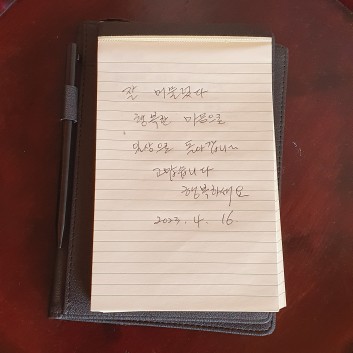 잘 머물렀다
행복한 마음으로
일상으로 돌아갑니다~
고맙습니다
행복하세요
2023. 4. 16.